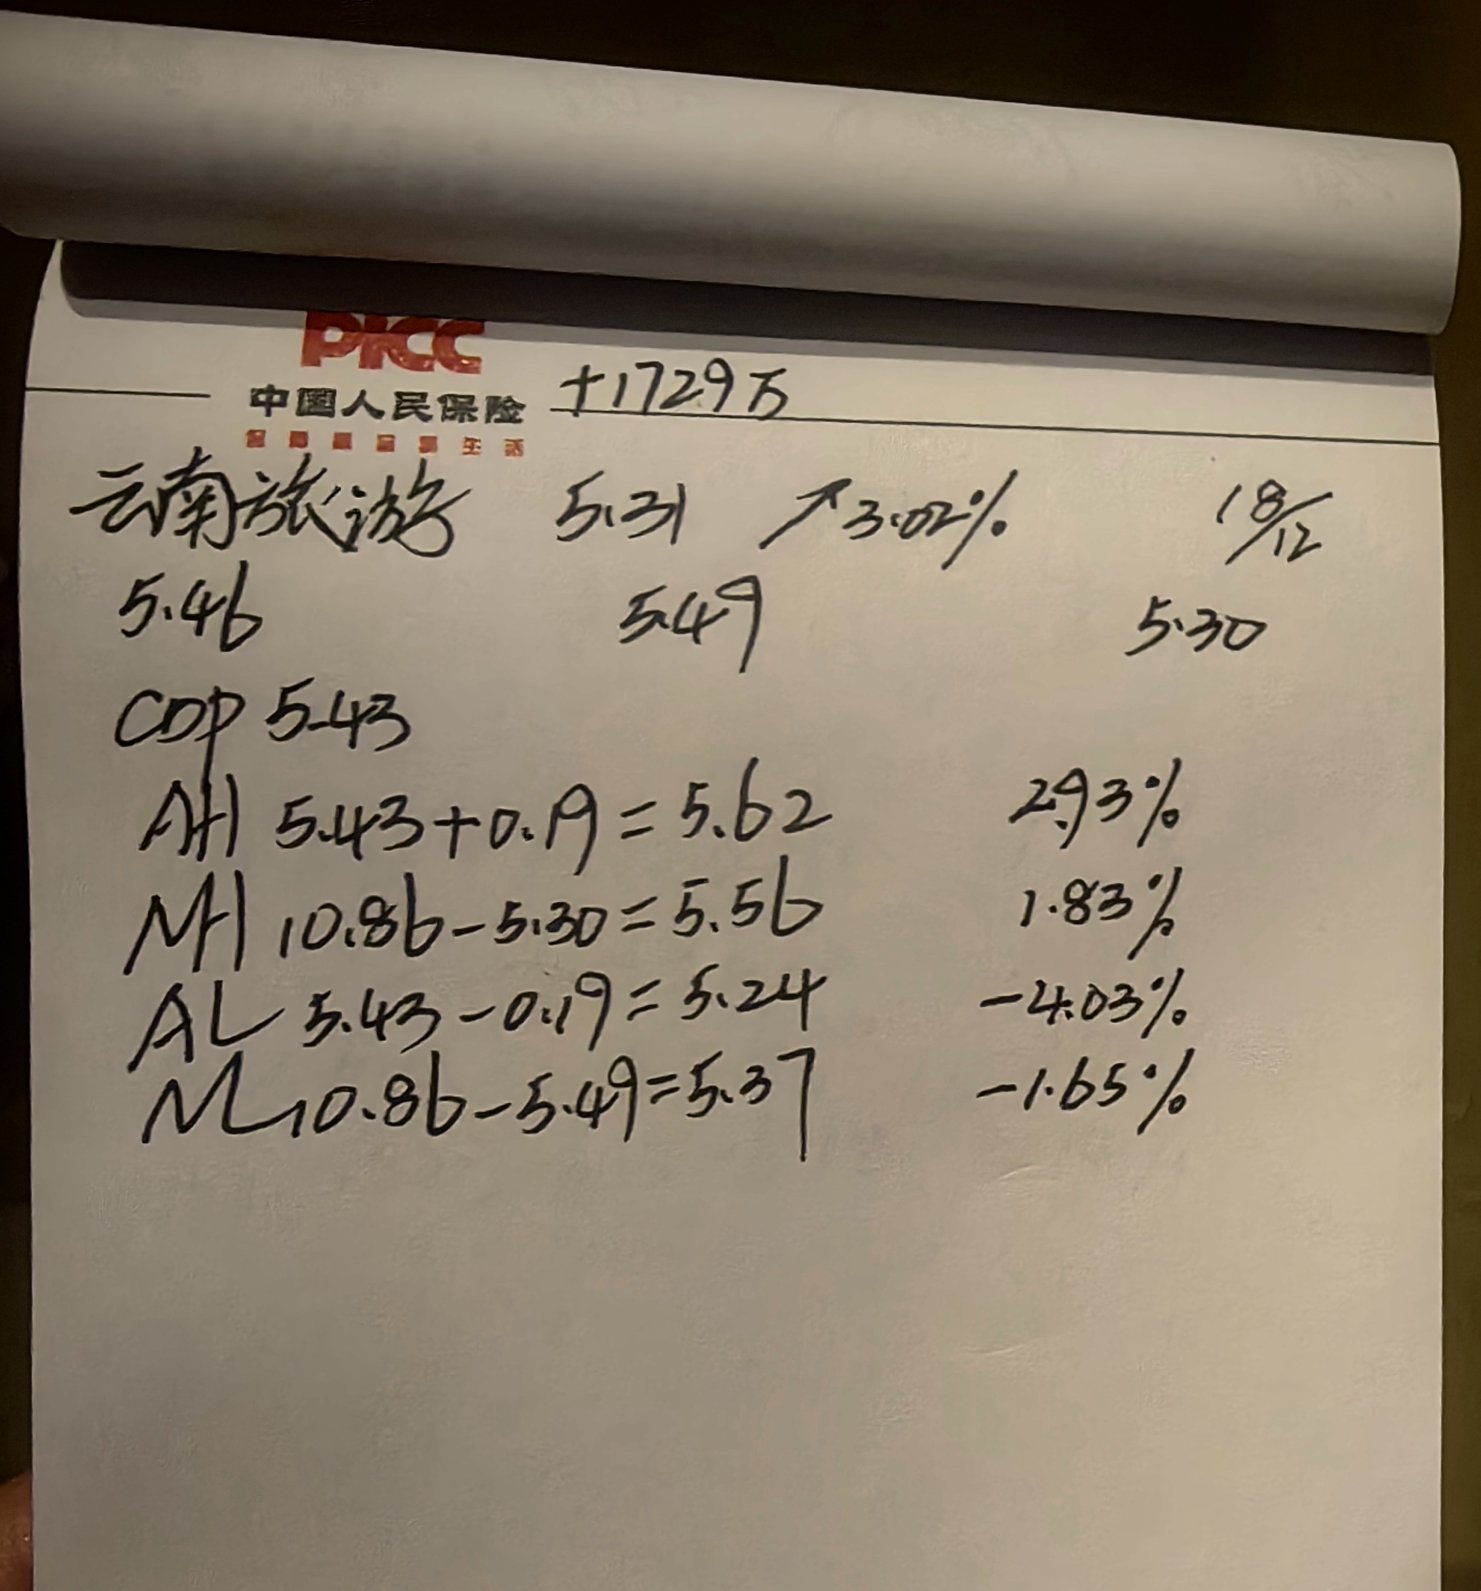 PICC
中国人民保险 +1729万
云南旅游 5.31 ↗3.02% 18/12
5.46 5.49 5.30
CDP 5.43
AH 5.43+0.19=5.62 2.93%
NH 10.86-5.30=5.56 1.83%
AL 5.43-0.19=5.24 -4.03%
NL 10.86-5.49=5.37 -1.65%